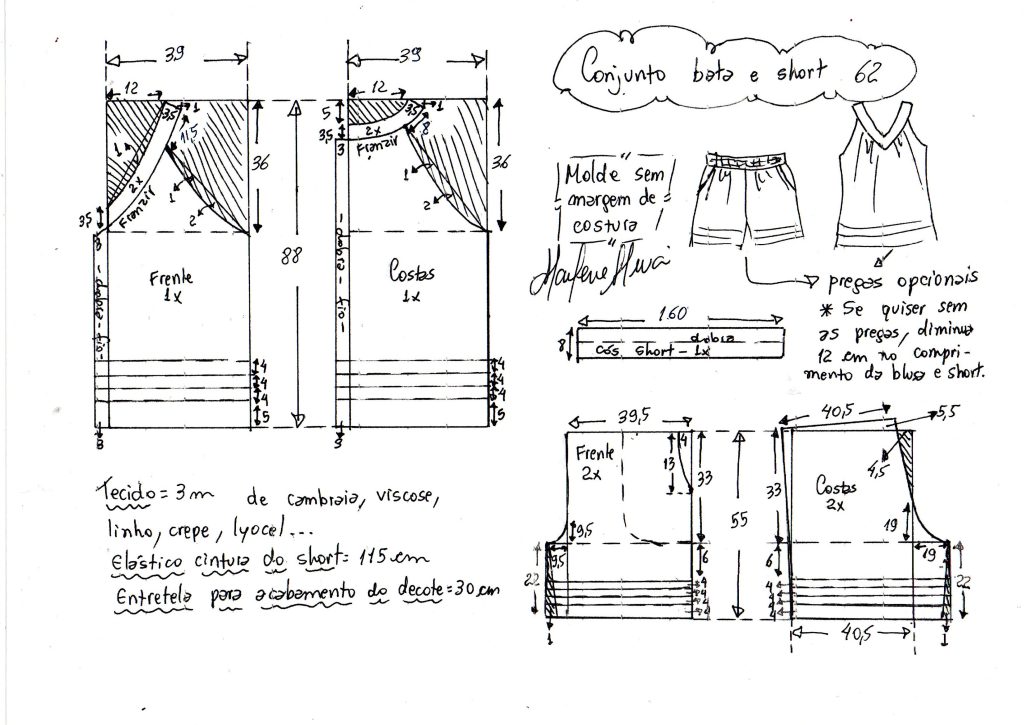 Conjunto bata e short 62
39
12
1
3,5
11,5
1
2x
Franzir
3,5
3
1
2
36
88
Frente
1x
dobra - fio
4
4
4
5
3
39
12
5
3,5
3,5
1
8
2x
Franzir
3
1
2
36
Costas
1x
dobra - fio
4
4
4
5
3
Molde sem
margem de
costura
pregas opcionais
* Se quiser sem
as pregas, diminua
12 cm no compri-
mento da blusa e short.
160
8
dobra
cós short - 1x
Tecido = 3m de cambraia, viscose,
linho, crepe, lyocel...
Elástico cintura do short = 115 cm
Entretela para acabamento do decote = 30 cm
39,5
Frente
2x
4
13
33
9,5
9,5
6
22
4
4
4
4
1
55
40,5
5,5
4,5
33
Costas
2x
19
19
6
22
4
4
4
4
40,5
1